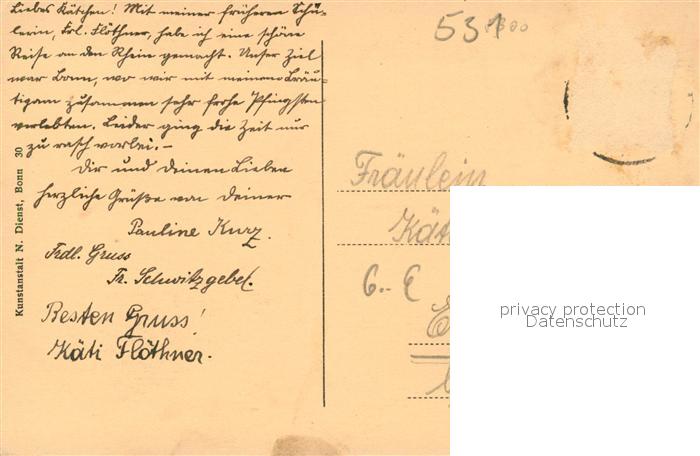 Liebes Kätchen! Mit meiner früheren Schü-
lerin, Frl. Flöthner, habe ich eine schöne
Reise an den Rhein gemacht. Unser Ziel
war Bonn, wo wir mit meinem Bräu-
tigam zusammen sehr frohe Pfingsten
verlebten. Leider ging die Zeit nur
zu rasch vorbei. –
Dir und deinen Lieben
herzliche Grüße von deiner
Pauline Kurz.
Frdl. Gruss
Fr. Schwitzgebel.
Besten Gruss!
Käti Flöthner.
Kunstanstalt N. Dienst, Bonn 30
531
Fräulein
Kät
privacy protection
Datenschutz